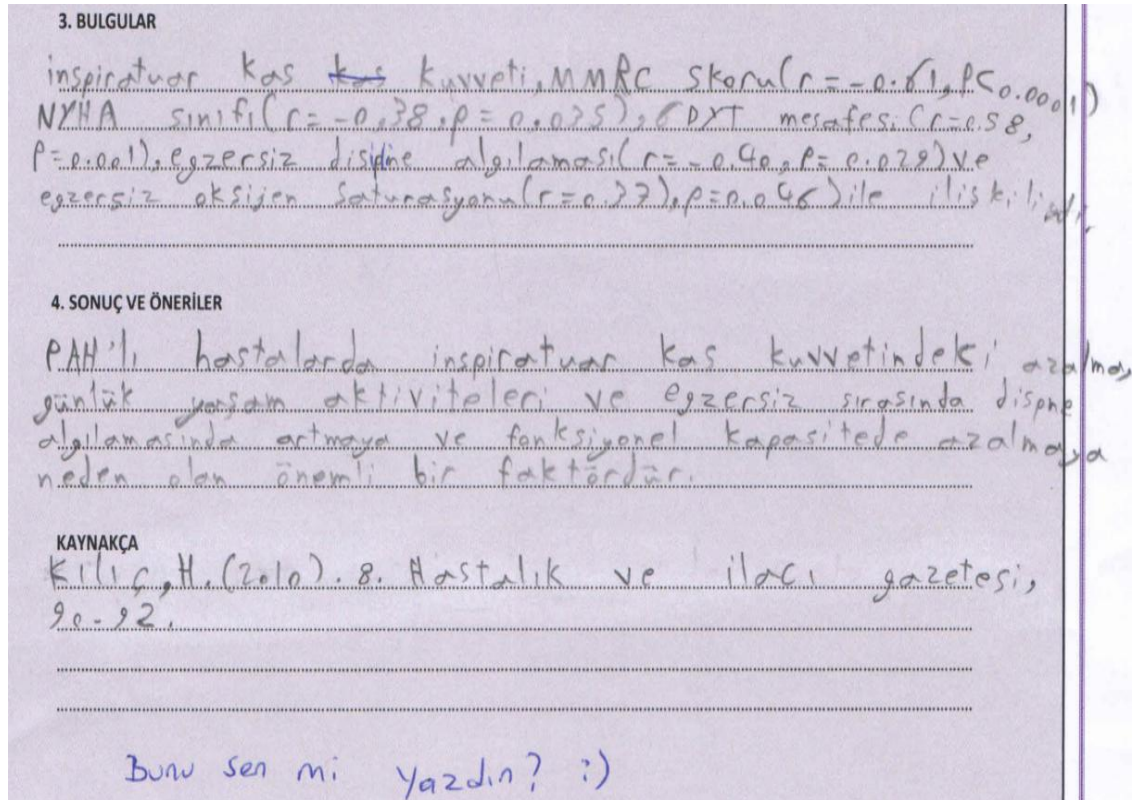 3. BULGULAR
inspiratuar kas kas kuvveti, MMRC skoru (r = -0.61, P<0.0001)
NYHA sınıfı (r = -0,38, p = 0,035), 6 DYT mesafesi (r=0.58,
P=0.001), egzersiz dispne algılaması (r= -0.40, P= 0.029) ve
egzersiz oksijen saturasyonu (r=0.37), p=0.046) ile ilişkiliydi.
4. SONUÇ VE ÖNERİLER
PAH'lı hastalarda inspiratuar kas kuvvetindeki azalma,
günlük yaşam aktiviteleri ve egzersiz sırasında dispne
algılamasında artmaya ve fonksiyonel kapasitede azalmaya
neden olan önemli bir faktördür.
KAYNAKÇA
Kılıç, H. (2010). 8. Hastalık ve ilacı gazetesi,
90-92.
Bunu sen mi yazdın? :)